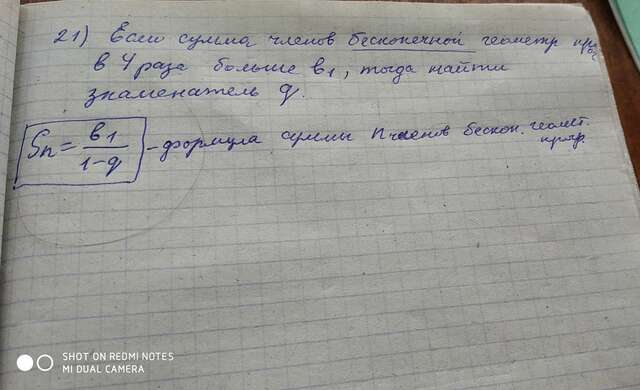 21) Если сумма членов бесконечной геометр. прог.
в 4 раза больше b₁, тогда найти
знаменатель q.
Sn = b1/1-q - формула суммы n членов бескон. геомет. прогр.
SHOT ON REDMI NOTE5
MI DUAL CAMERA